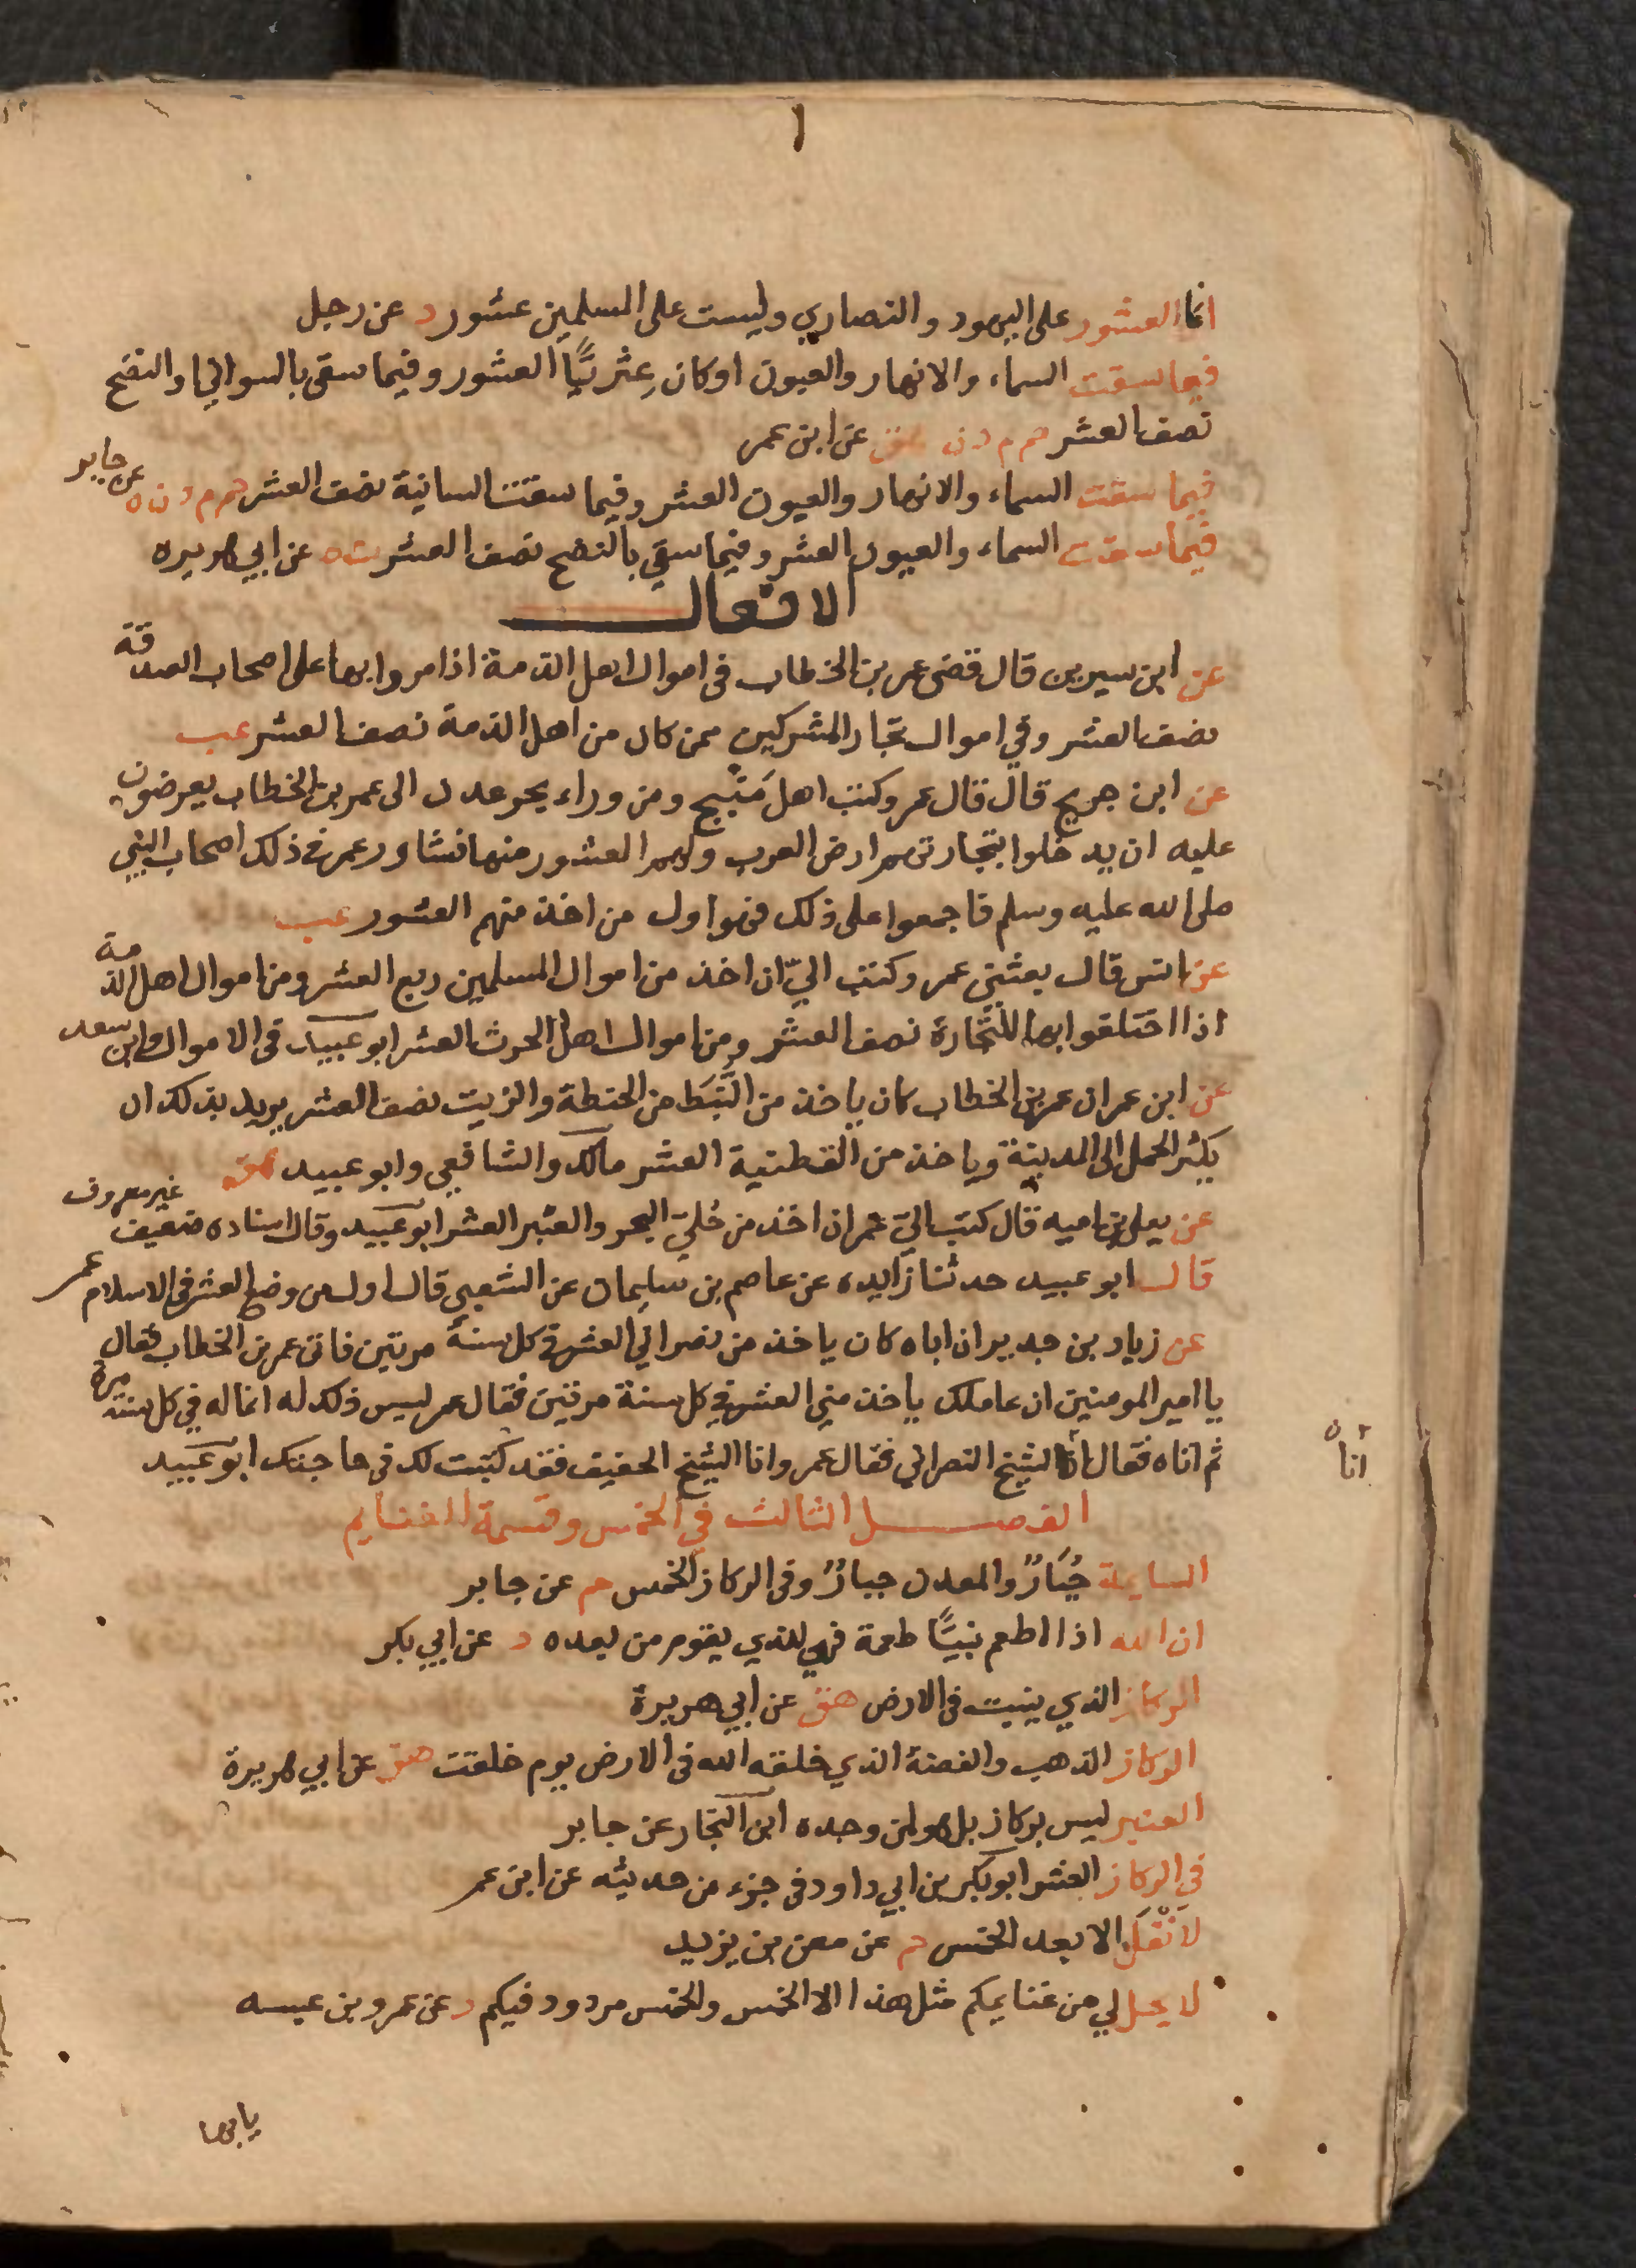 انما العشور على اليهود والنصاري وليست على المسلمين عشور د عن رجل
فيما سقت السماء والانهار والعيون اوكان عِثريًّا العشور وفيما سقى بالسواني او النضح
نصف العشر حم م د ن هق عن ابن عمر
فيما سقت السماء والانهار والعيون العشر وفيما سقت السانية نصف العشر حم م د ن ه عن جابر
فيما سقت السماء والعيون العشر وفيما سقي بالنضح نصف العشر ت ه عن ابي هريره
الافعال
عن ابن سيرين قال قضى عمر بن الخطاب فى اموال اهل الذمة اذا مروا بها على اصحاب الصدقة
نصف العشر وفي اموال تجار المشركين ممن كان من اهل الذمة نصف العشر عب
عن ابن جريج قال قال عمر وكتب اهل مَنْبج ومن وراء بحر عدن الى عمر بن الخطاب يعرضون
عليه ان يدخلوا بتجارتهم ارض العرب ولهم العشور منها فشاور عمر في ذلك اصحاب النبي
صلى الله عليه وسلم فاجمعوا على ذلك فهو اول من اخذ منهم العشور عب
عن انس قال بعثني عمر وكتب اليّ ان اخذ من اموال المسلمين ربع العشر ومن اموال اهل الذمة
اذا اختلفوا بها للتجارة نصف العشر ومن اموال اهل الحرث العشر ابو عبيد فى الاموال وابن سعد
عن ابن عمر ان عمر بن الخطاب كان ياخذ من النَّبَط من الحنطة والزيت نصف العشر يريد بذلك ان
يكثر الحمل الى المدينة وياخذ من القطنية العشر مالك والشافعي وابو عبيد هق
عن يعلى بن اميه قال كتب اليّ عمر ان اخذ من حُليّ البحر والعنبر العشر ابو عبيد وقال اسناده ضعيف غير معروف
قال ابو عبيد حدثنا زايده عن عاصم بن سليمان عن الشعبي قال اول من وضع العشر فى الاسلام عمر
عن زياد بن حدير ان اباه كان ياخذ من نصراني العشر في كل سنة مرتين فاتى عمر بن الخطاب فقال
يا امير المومنين ان عاملك يأخذ مني العشر في كل سنة مرتين فقال عمر ليس ذلك له انما له في كل سنة مرة
ثم اتاه فقال انا الشيخ النصراني فقال عمر وانا الشيخ الحنيف فقد كتبت لك في حاجتك ابو عبيد
انا
الفصل الثالث في الخمس وقسمة الغنايم
السايمة جُبَارٌ والمعدن جبارٌ وفى الركاز الخمس حم عن جابر
ان الله اذا اطعم نبيًّا طعمة فهي للذي يقوم من بعده د عن ابي بكر
الركاز الذي ينبت فى الارض هق عن ابي هريرة
الركاز الذهب والفضة الذي خلقه الله فى الارض يوم خلقت هق عن ابي هريرة
العنبر ليس بركاز بل هو لمن وجده ابن النجار عن جابر
في الركاز العشر ابو بكر بن ابي داود فى جزء من حديثه عن ابن عمر
لا نَفْل الا بعد الخمس حم عن معن بن يزيد
لا يحل لي من غنايمكم مثل هذا الا الخمس والخمس مردود فيكم د عن عمرو بن عبسه